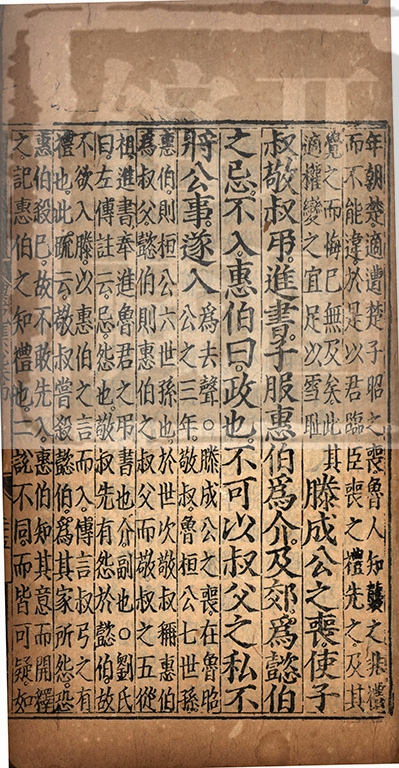 年朝楚適遭楚子昭之喪魯人知襲之非禮
而不能違於是以君臨臣喪之禮先之及其
覺之而悔已無及矣此其
適權變之宜足以雪恥
滕成公之喪使子
叔敬叔弔進書子服惠伯爲介及郊爲懿伯
之忌不入惠伯曰政也不可以叔父之私不
將公事遂入
爲去聲○滕成公之喪在魯昭
公之三年敬叔魯桓公七世孫
惠伯則桓公六世孫也於世次敬叔稱惠伯
爲叔父懿伯則惠伯之叔父而敬叔之五從
祖進書奉進魯君之弔書也介副也○劉氏
曰左傳註云忌怨也敬叔先有怨於懿伯故
不欲入滕以惠伯之言而入傳言叔弓之有
禮也此疏云敬叔嘗殺懿伯爲其家所怨恐
惠伯殺已故不敢先入惠伯知其意而開釋
之記惠伯之知禮也二說不同而皆可疑如